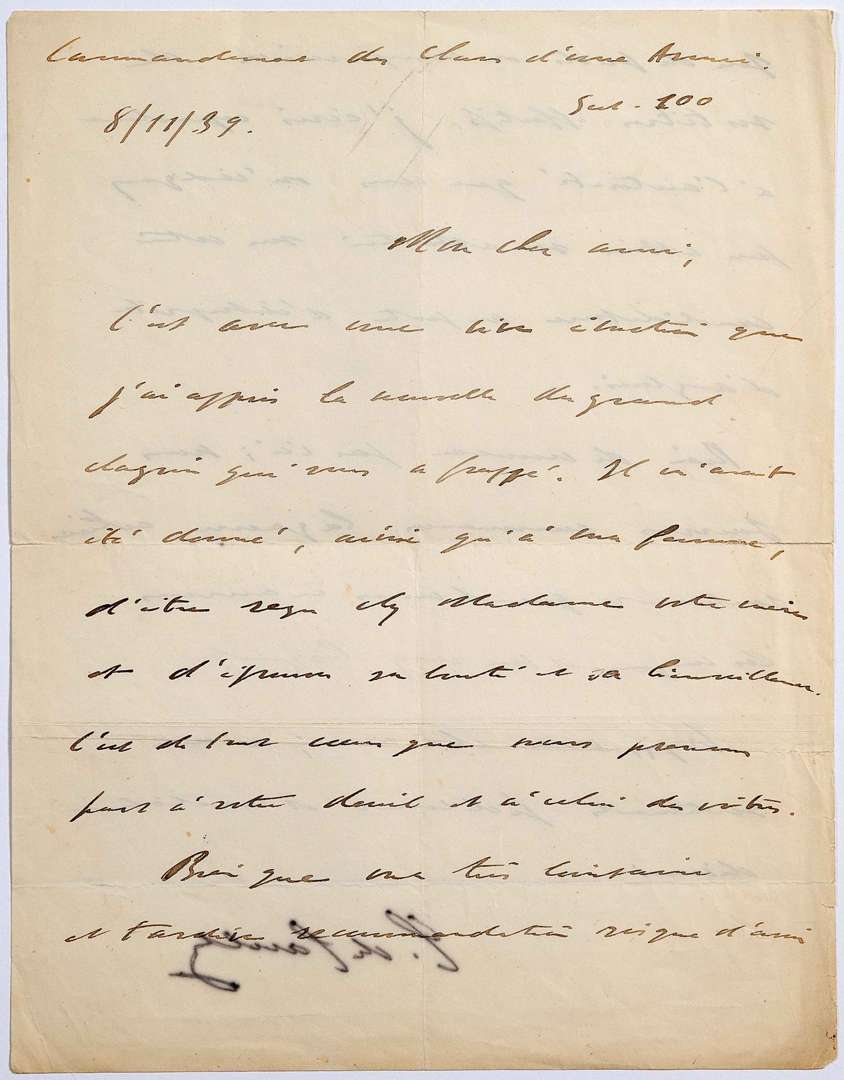 Commandement des Chars d'une Armée.
Sect. 100
8/11/39.
Mon cher ami,
C'est avec une vive émotion que
j'ai appris la nouvelle du grand
chagrin qui vous a frappé. Il m'avait
été donné, ainsi qu'à ma femme,
d'être reçu chez Madame votre mère
et d'éprouver sa bonté et sa bienveillance.
C'est de tout cœur que nous prenons
part à votre deuil et à celui des vôtres.
Bien que ma très lointaine
et tardive recommandation risque d'avoir